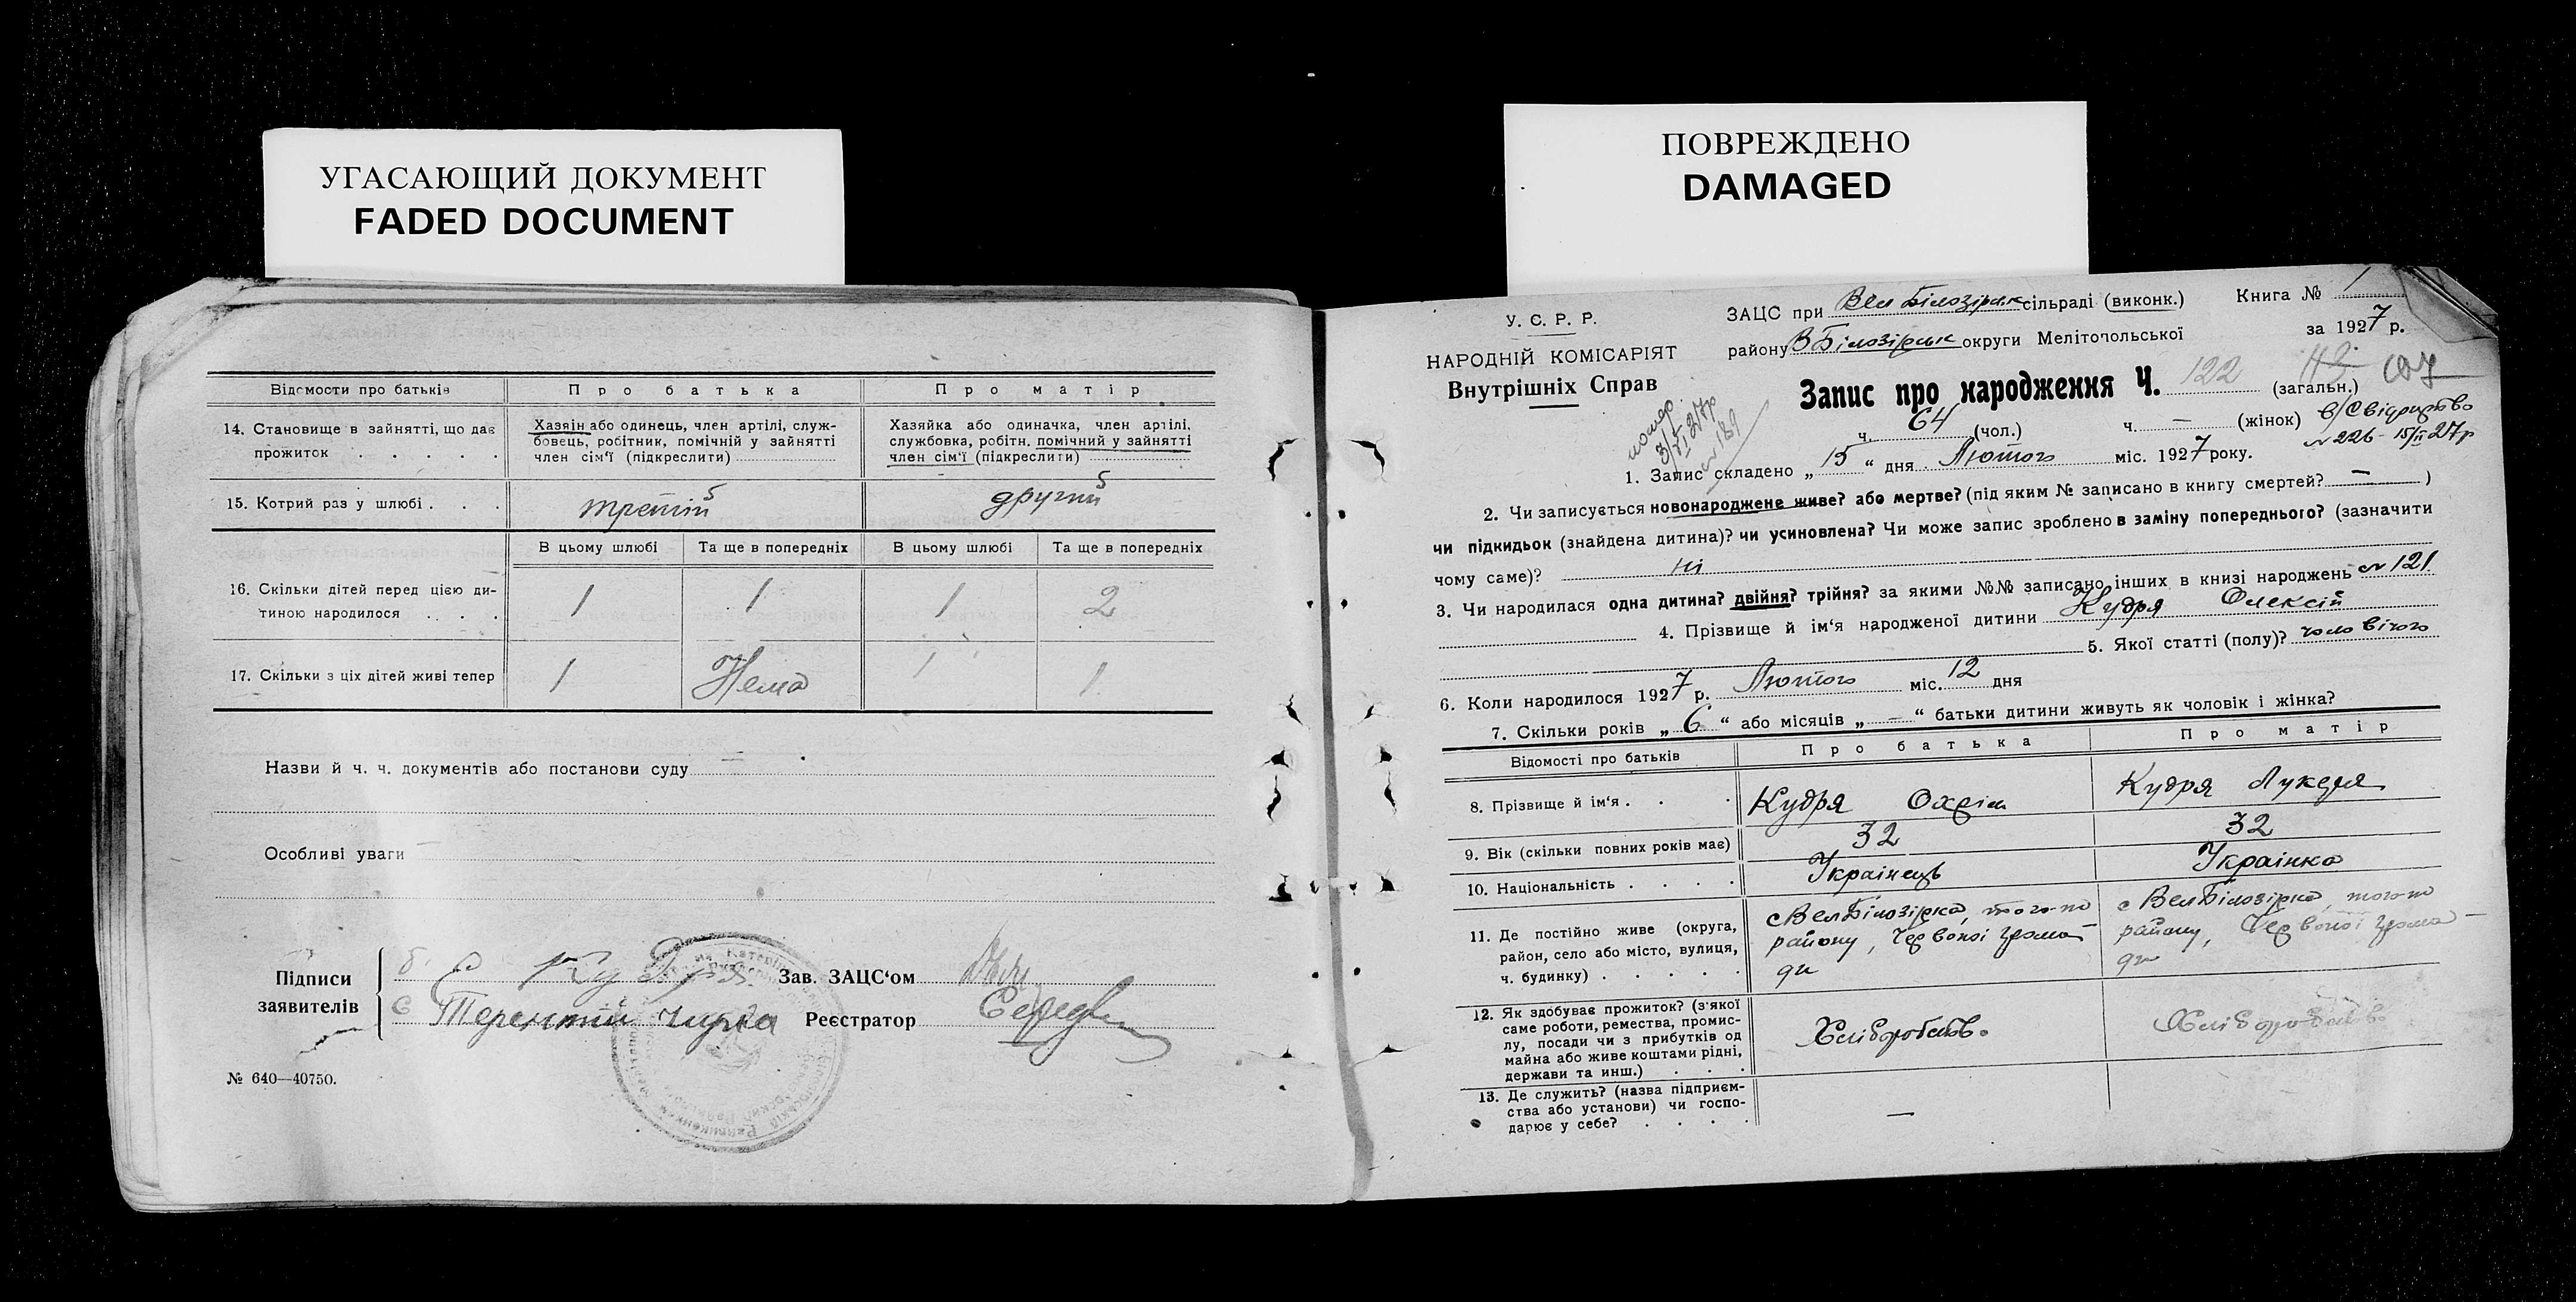 УГАСАЮЩИЙ ДОКУМЕНТ
FADED DOCUMENT
ПОВРЕЖДЕНО
DAMAGED
Відомости про батьків
Про батька
Про матір
14. Становище в зайнятті, що дає прожиток . . . . .
Хазяін або одинець, член артілі, служ-
бовець, робітник, помічній у зайнятті
член сім'ї (підкреслити)
Хазяйка або одиначка, член артілі.
службовка, робітн. помічний у зайнятті
член сім'ї (підкреслити)
15. Котрий раз у шлюбі . . .
третій
другий
В цьому шлюбі
Та ще в попередніх
В цьому шлюбі
Та ще в попередніх
16. Скільки дітей перед цією ди-
тиною народилося . . . .
1
1
1
2
17. Скільки з ціх дітей живі тепер
1
Нема
1
1
Назви й ч. ч. документів або постанови суду —
Особливі уваги —
Підписи
заявителів
Кудря
Зав. ЗАЦС'ом
Терентій Чирка
Реєстратор
№ 640—40750.
У. С. Р. Р.
НАРОДНІЙ КОМІСАРІЯТ
Внутрішніх Справ
ЗАЦС при Вел Білозірськ сільраді (виконк.)
Книга № 1
району ВБілозірськ округи Мелітопольської
за 1927 р.
Запис про народження Ч. 122 (загальн.)
ч. 64 (чол.)
ч. — (жінок)
в/Свідоцтво
№ 226 - 15/II 27р
1. Запис складено „ 15 “ дня Лютого міс. 1927 року.
2. Чи записується новонароджене живе? або мертве? (під яким № записано в книгу смертей? — )
чи підкидьок (знайдена дитина)? чи усиновлена? Чи може запис зроблено в заміну попереднього? (зазначити
чому саме)? ні
3. Чи народилася одна дитина? двійня? трійня? за якими №№ записано інших в книзі народжень № 121
4. Прізвище й ім'я народженої дитини Кудря Олексій
5. Якої статті (полу)? чоловічого
6. Коли народилося 1927 р. Лютого міс. 12 дня
7. Скільки років „ 6 “ або місяців „ — “ батьки дитини живуть як чоловік і жінка?
Відомості про батьків
Про батька
Про матір
8. Прізвище й ім'я . . .
Кудря Охрім
Кудря Лукеря
9. Вік (скільки повних років має)
32
32
10. Національність . . . .
Українець
Українка
11. Де постійно живе (округа,
район, село або місто, вулиця,
ч. будинку) . . . . .
с ВелБілозірка, того-по
району, Червоної грома-
ди
с ВелБілозірка, того-по
району, Червоної грома-
ди
12. Як здобуває прожиток? (з'якої
саме роботи, ремества, промис-
лу, посади чи з прибутків од
майна або живе коштами рідні,
держави та инш.) . . .
Хліборобств.
Хліборобств.
13. Де служить? (назва підприєм-
ства або установи) чи госпо-
дарює у себе? . . . .
—